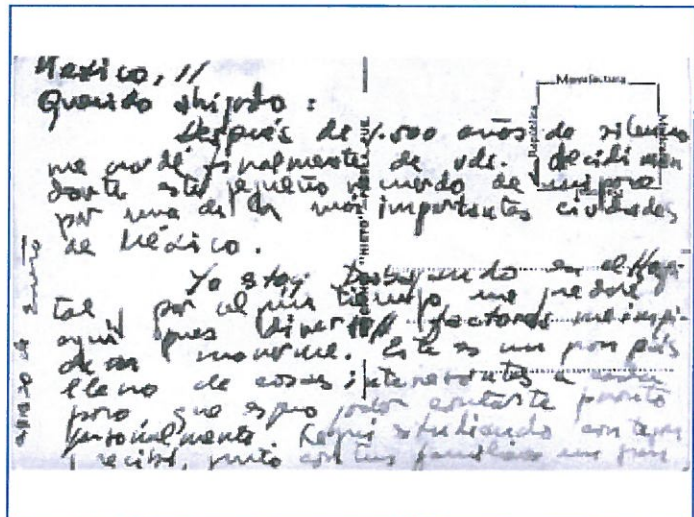 Mexico, 11
Querido ahijado :
Después de 1.500 años de silencio
me acordé finalmente de uds. decidí man
darte este pequeño recuerdo de mi paso
por una de las más importantes ciudades
de México.
Yo estoy trabajando en el Hospi-
tal, y por algún tiempo me quedaré
aquí pues diversos factores me impi-
den moverme. Este es un gran país
lleno de cosas interesantes a
pero que espero poder contarte pronto
personalmente. Seguí estudiando con
y recibí, junto con tus familiares un gran
abrazo de
Manufactura
República
Mexicana